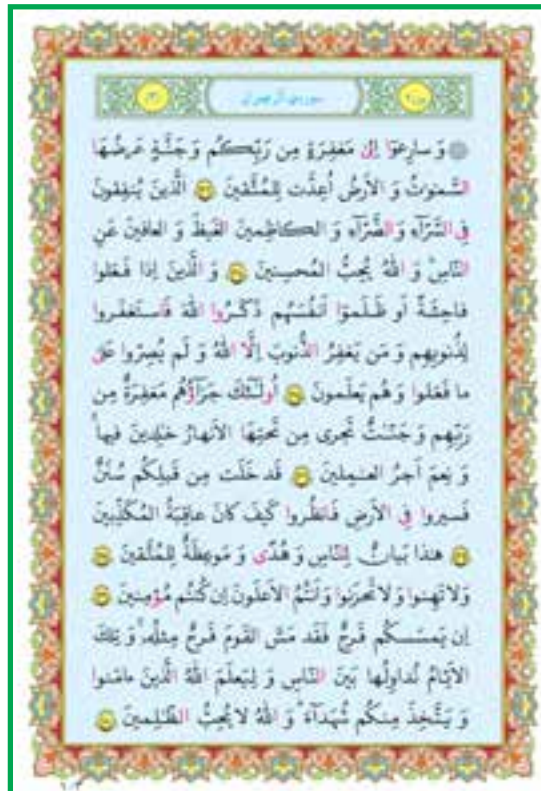 سورة آل عمران
وَ سارِعوا إِلىٰ مَغفِرَةٍ مِن رَبِّكُم وَ جَنَّةٍ عَرضُهَا
السَّمٰوٰتُ وَ الأَرضُ أُعِدَّت لِلمُتَّقينَ الَّذينَ يُنفِقونَ
فِى السَّرّآءِ وَ الضَّرّآءِ وَ الكاظِمينَ الغَيظَ وَ العافينَ عَنِ
النّاسِ وَ اللهُ يُحِبُّ المُحسِنينَ وَ الَّذينَ إِذا فَعَلوا
فاحِشَةً أَو ظَلَموا أَنفُسَهُم ذَكَروا اللهَ فَاستَغفَروا
لِذُنوبِهِم وَ مَن يَغفِرُ الذُّنوبَ إِلَّا اللهُ وَ لَم يُصِرّوا عَلىٰ
ما فَعَلوا وَ هُم يَعلَمونَ أُولٰئِكَ جَزَآؤُهُم مَغفِرَةٌ مِن
رَبِّهِم وَ جَنّٰتٌ تَجرى مِن تَحتِهَا الأَنهارُ خٰلِدينَ فيها
وَ نِعمَ أَجرُ العٰمِلينَ قَد خَلَت مِن قَبلِكُم سُنَنٌ
فَسيروا فِى الأَرضِ فَانظُروا كَيفَ كانَ عاقِبَةُ المُكَذِّبينَ
هٰذا بَيانٌ لِلنّاسِ وَ هُدًى وَ مَوعِظَةٌ لِلمُتَّقينَ
وَلا تَهِنوا وَ لا تَحزَنوا وَ أَنتُمُ الأَعلَونَ إِن كُنتُم مُؤمِنينَ
إِن يَمسَسكُم قَرحٌ فَقَد مَسَّ القَومَ قَرحٌ مِثلُهُ وَ تِلكَ
الأَيّامُ نُداوِلُها بَينَ النّاسِ وَ لِيَعلَمَ اللهُ الَّذينَ ءامَنوا
وَ يَتَّخِذَ مِنكُم شُهَدآءَ وَ اللهُ لا يُحِبُّ الظّٰلِمينَ